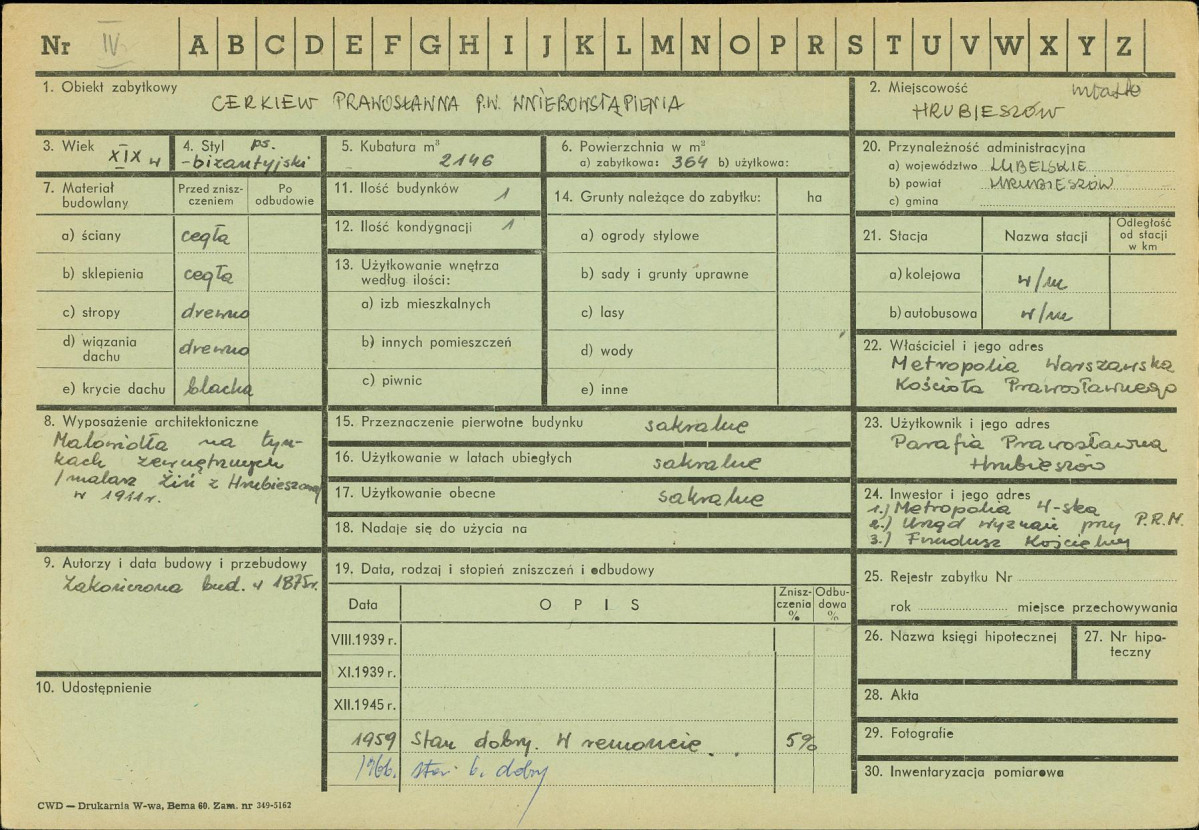 Nr IV A B C D E F G H I J K L M N O P R S T U V W X Y Z
1. Obiekt zabytkowy
CERKIEW PRAWOSŁAWNA P.W. WNIEBOWSTĄPIENIA
2. Miejscowość miasto
HRUBIESZÓW
3. Wiek XIX w
4. Styl ps.
-bizantyjski
5. Kubatura m³
2146
6. Powierzchnia w m²
a) zabytkowa: 364 b) użytkowa:
20. Przynależność administracyjna
a) województwo LUBELSKIE
b) powiat HRUBIESZÓW
c) gmina
7. Materiał
budowlany
Przed znisz-
czeniem
Po
odbudowie
a) ściany cegła
b) sklepienia cegła
c) stropy drewno
d) wiązania
dachu drewno
e) krycie dachu blacha
11. Ilość budynków 1
12. Ilość kondygnacji 1
13. Użytkowanie wnętrza
według ilości:
a) izb mieszkalnych
b) innych pomieszczeń
c) piwnic
14. Grunty należące do zabytku: ha
a) ogrody stylowe
b) sady i grunty uprawne
c) lasy
d) wody
e) inne
21. Stacja Nazwa stacji
Odległość
od stacji
w km
a) kolejowa w/m
b) autobusowa w/m
22. Właściciel i jego adres
Metropolia Warszawska
Kościoła Prawosławnego
8. Wyposażenie architektoniczne
Malowidła na tyn-
kach zewnętrznych
/malarz Żiń z Hrubieszowa
w 1911r.
15. Przeznaczenie pierwotne budynku sakralne
16. Użytkowanie w latach ubiegłych sakralne
17. Użytkowanie obecne sakralne
18. Nadaje się do użycia na
23. Użytkownik i jego adres
Parafia Prawosławna
Hrubieszów
24. Inwestor i jego adres
1.) Metropolia W-ska
2.) Urząd wyznań przy P.R.M.
3.) Fundusz Kościelny
9. Autorzy i data budowy i przebudowy
Zakończona bud. w 1875r.
19. Data, rodzaj i stopień zniszczeń i odbudowy
Data OPIS
Znisz-
czenia
%
Odbu-
dowa
%
VIII.1939 r.
XI.1939 r.
XII.1945 r.
1959 Stan dobry. W remoncie. 5%
1966. stan b. dobry
25. Rejestr zabytku Nr
rok miejsce przechowywania
26. Nazwa księgi hipotecznej
27. Nr hipo-
teczny
10. Udostępnienie
28. Akta
29. Fotografie
30. Inwentaryzacja pomiarowa
CWD — Drukarnia W-wa, Bema 60. Zam. nr 349-5162